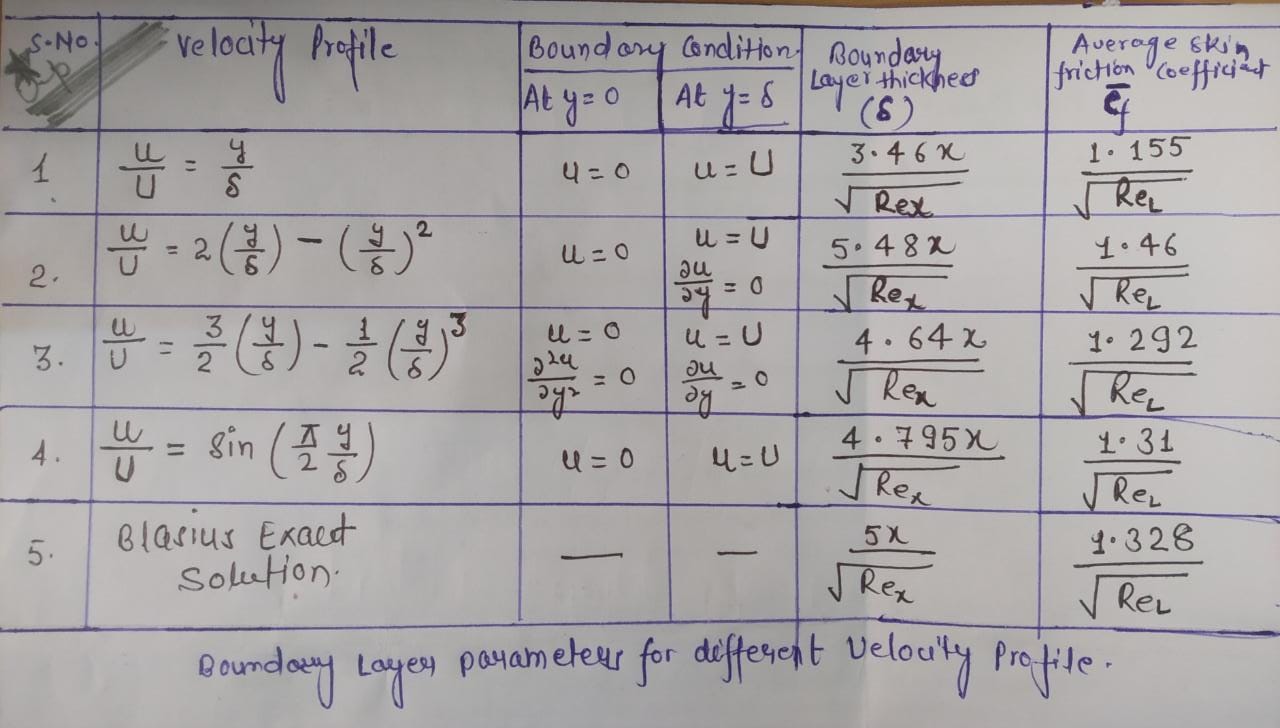 S.No. Velocity Profile Boundary Condition Boundary Layer thickness (δ) Average skin friction Coefficient C̄f
At y=0 At y=δ
1 u/U = y/δ u=0 u=U 3.46x/√Rex 1.155/√ReL
2. u/U = 2(y/δ) - (y/δ)² u=0 u=U ∂u/∂y = 0 5.48x/√Rex 1.46/√ReL
3. u/U = 3/2 (y/δ) - 1/2 (y/δ)³ u=0 ∂²u/∂y² = 0 u=U ∂u/∂y = 0 4.64x/√Rex 1.292/√ReL
4. u/U = Sin (π/2 y/δ) u=0 u=U 4.795x/√Rex 1.31/√ReL
5. Blasius Exact Solution. — — 5x/√Rex 1.328/√ReL
Boundary Layer parameters for different Velocity Profile.